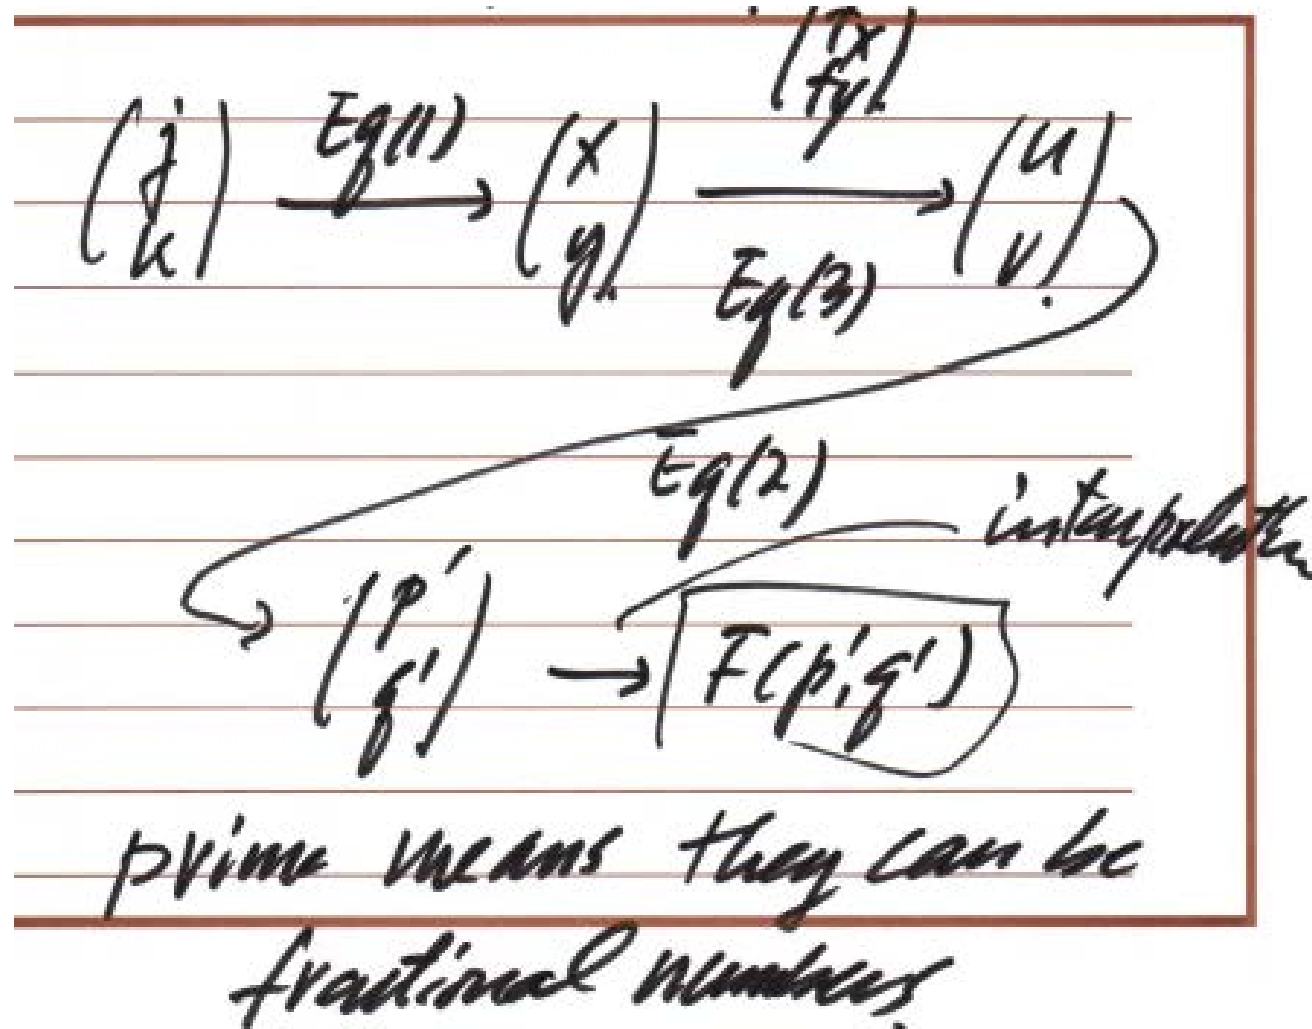 (fx
fy)
(j
k) Eq(1) → (x
y) → (u
v)
Eq(3)
Eq(2) interpolation
(p'
q') → F(p',q')
prime means they can be
fractional numbers.